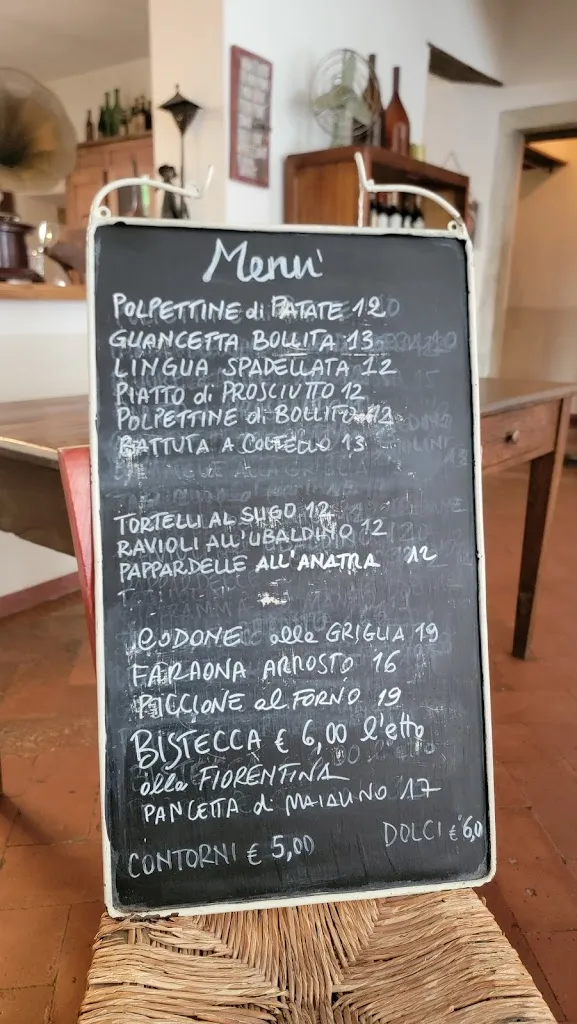 Menu'
POLPETTINE di PATATE 12
GUANCETTA BOLLITA 13
LINGUA SPADELLATA 12
PIATTO di PROSCIUTTO 12
POLPETTINE di BOLLITO 12
BATTUTA A COLTELLO 13
TORTELLI AL SUGO 12
RAVIOLI ALL'UBALDINO 12
PAPPARDELLE ALL'ANATRA 12
CODONE alla GRIGLIA 19
FARAONA ARROSTO 16
PICCIONE al FORNO 19
BISTECCA € 6,00 l'etto
alla FIORENTINA
PANCETTA di MAIALINO 17
DOLCI € 6,0
CONTORNI € 5,00